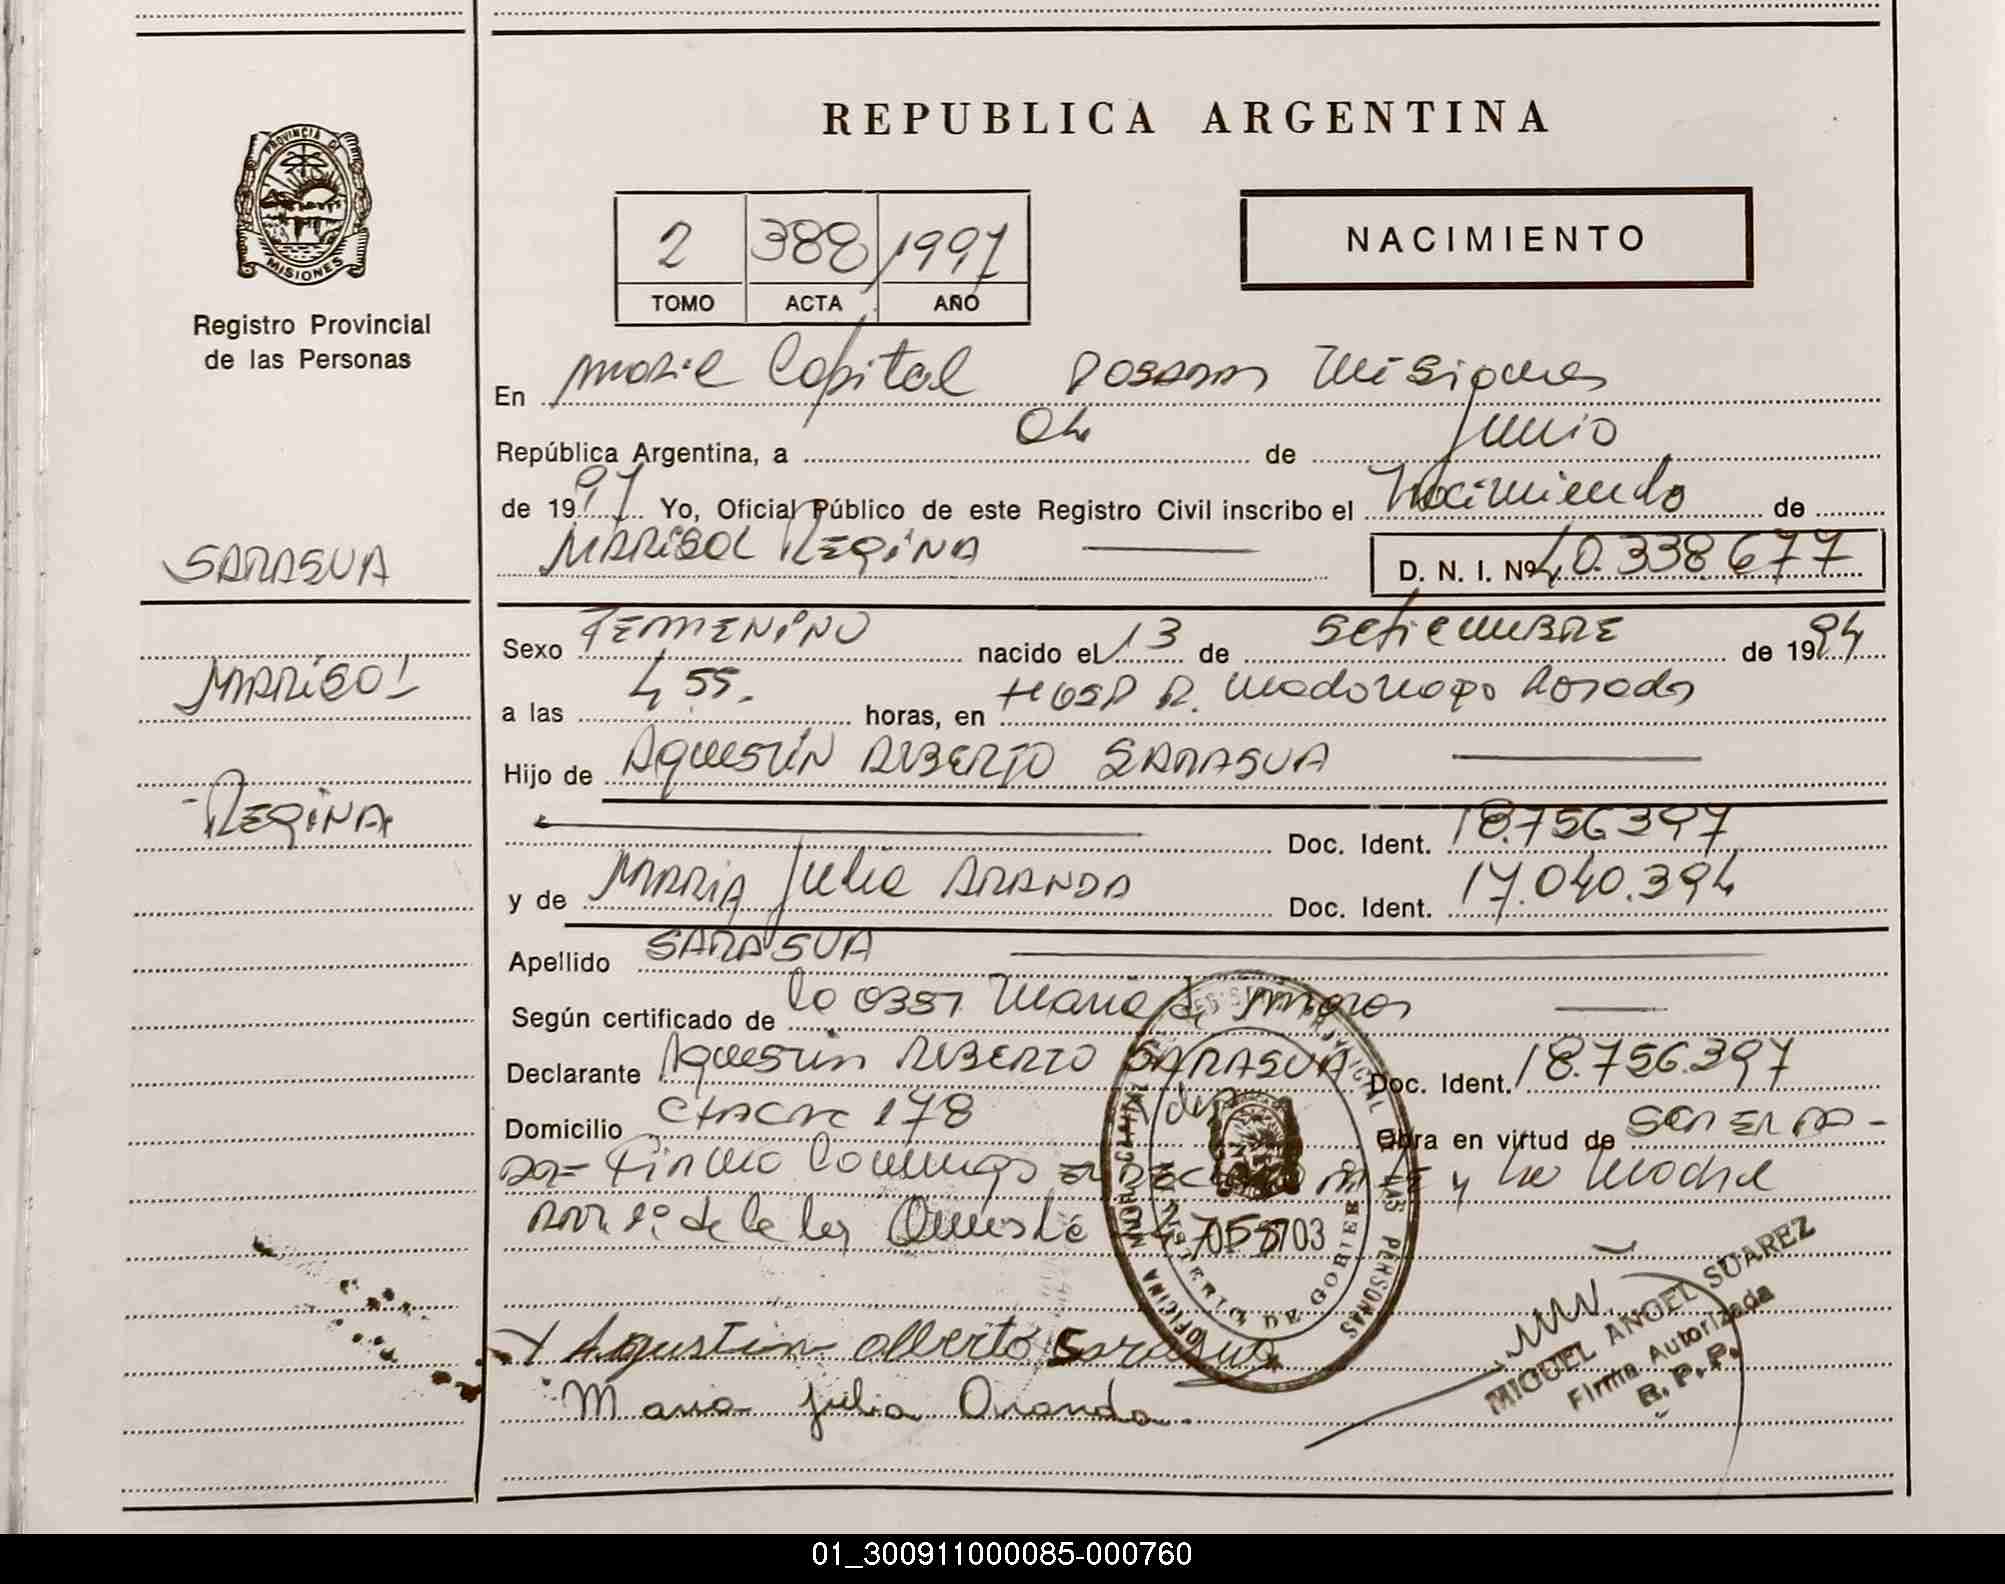 REPUBLICA ARGENTINA
PROVINCIA DE
MISIONES
Registro Provincial
de las Personas
2 388 1997
TOMO ACTA AÑO
NACIMIENTO
En Capital Posadas Misiones
República Argentina, a 04 de Junio
de 1997 Yo, Oficial Público de este Registro Civil inscribo el Nacimiento de
MARISOL REGINA D. N. I. Nº 40.338.677
SARASUA
MARISOL
REGINA
Sexo FEMENINO nacido el 13 de SETIEMBRE de 1994
a las 4,55. horas, en HOSP R. Madariaga Posadas
Hijo de AGUSTIN ALBERTO SARASUA
Doc. Ident. 18.756.397
y de MARIA Julia ARANDA Doc. Ident. 17.040.394
Apellido SARASUA
Según certificado de Maria
Declarante Agustin ALBERTO SARASUA Doc. Ident. 18.756.397
Domicilio CHACRA 178 Obra en virtud de
Firma Conmigo y la Madre
055703
X Agustin Alberto Sarasua
Maria Julia Aranda
MINISTERIO DE GOBIERNO
MIGUEL ANGEL SUAREZ
Firma Autorizada
R. P. P.
01_300911000085-000760